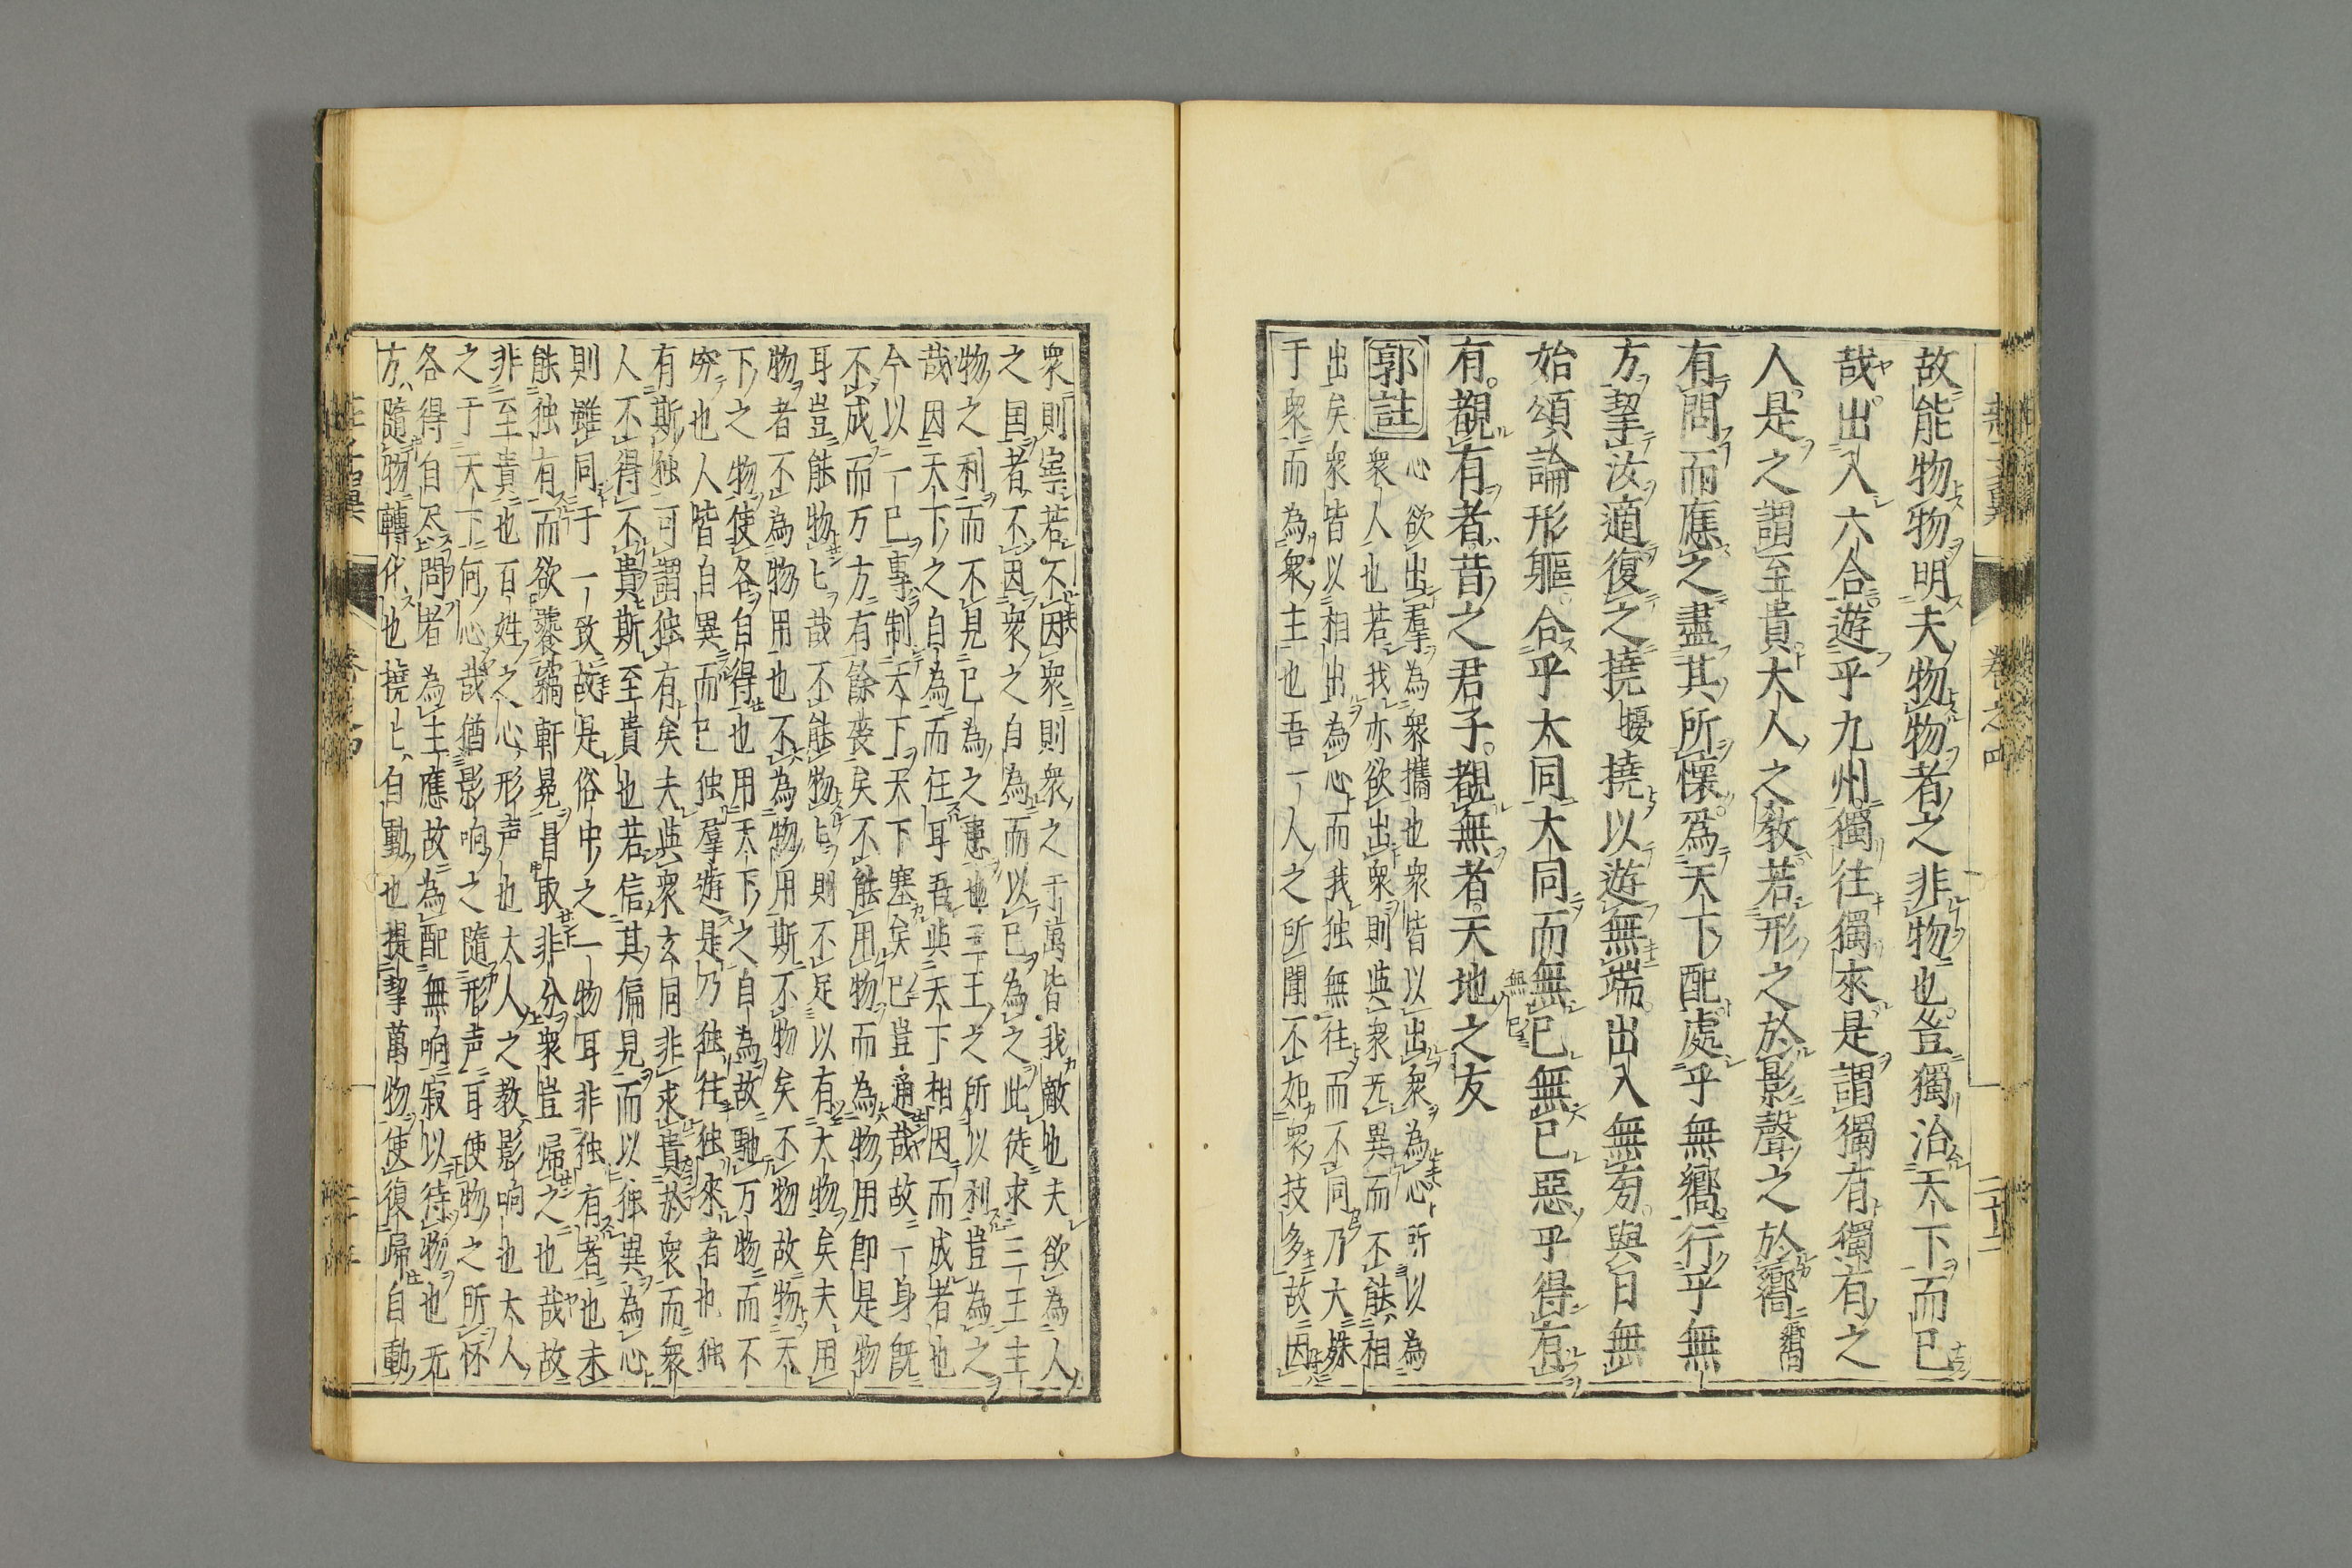 故能物物明夫物物者之非物也豈獨治天下而已
哉出入六合遊乎九州獨往獨來是謂獨有獨有之
人是之謂至貴大人之教若形之於影聲之於嚮
有問而應之盡其所懷爲天下配處乎無嚮行乎無
方挈汝適復之撓撓以遊無端出入無旁與日無
始頌論形軀合乎大同大同而無已無已惡乎得有
有覩有者昔之君子覩無者天地之友
郭註
心欲出羣為衆攜也衆皆以出衆為心所以為
衆人也若我亦欲出衆則與衆无異而不能相
出矣衆皆以相出為心而我独無往而不同乃大殊
于衆而為衆主也吾一人之所聞不如衆技多故因
衆則寧若不因衆則衆之于萬皆我敵也夫欲為人
之国者不因衆之自為而以已為之此徒求三王主
物之利而不見已為之患也三王之所以利豈為之
哉因天下之自為而任耳吾與天下相因而成者也
今以一已專制天下天下塞矣已豈通哉故一身既
不成而万方有餘喪矣不能用物而為物用即是物
耳豈能物匕哉不能物匕則不足以有大物矣夫用
物者不為物用也不為物用斯不物矣不物故物天
下之物使各自得也用天下之自為故馳万物而不
窮也人皆自異而已独羣遊是乃独往独來者也独
有斯独可謂独有矣夫與衆玄同非求貴於衆而衆
人不得不貴斯至貴也若信其偏見而以独異為心
則雖同于一致故是俗中之一物耳非独有者也未
能独有而欲饕竊軒冕冒取非分衆豈歸之也哉故
非至貴也百姓之心形声也大人之教影响也大人
之于天下何心哉猶影响之隨形声耳使物之所怀
各得自尽問者為主應故為配無响寂以待物也无
方隨物轉化也撓匕自動也提挈萬物使復歸自動